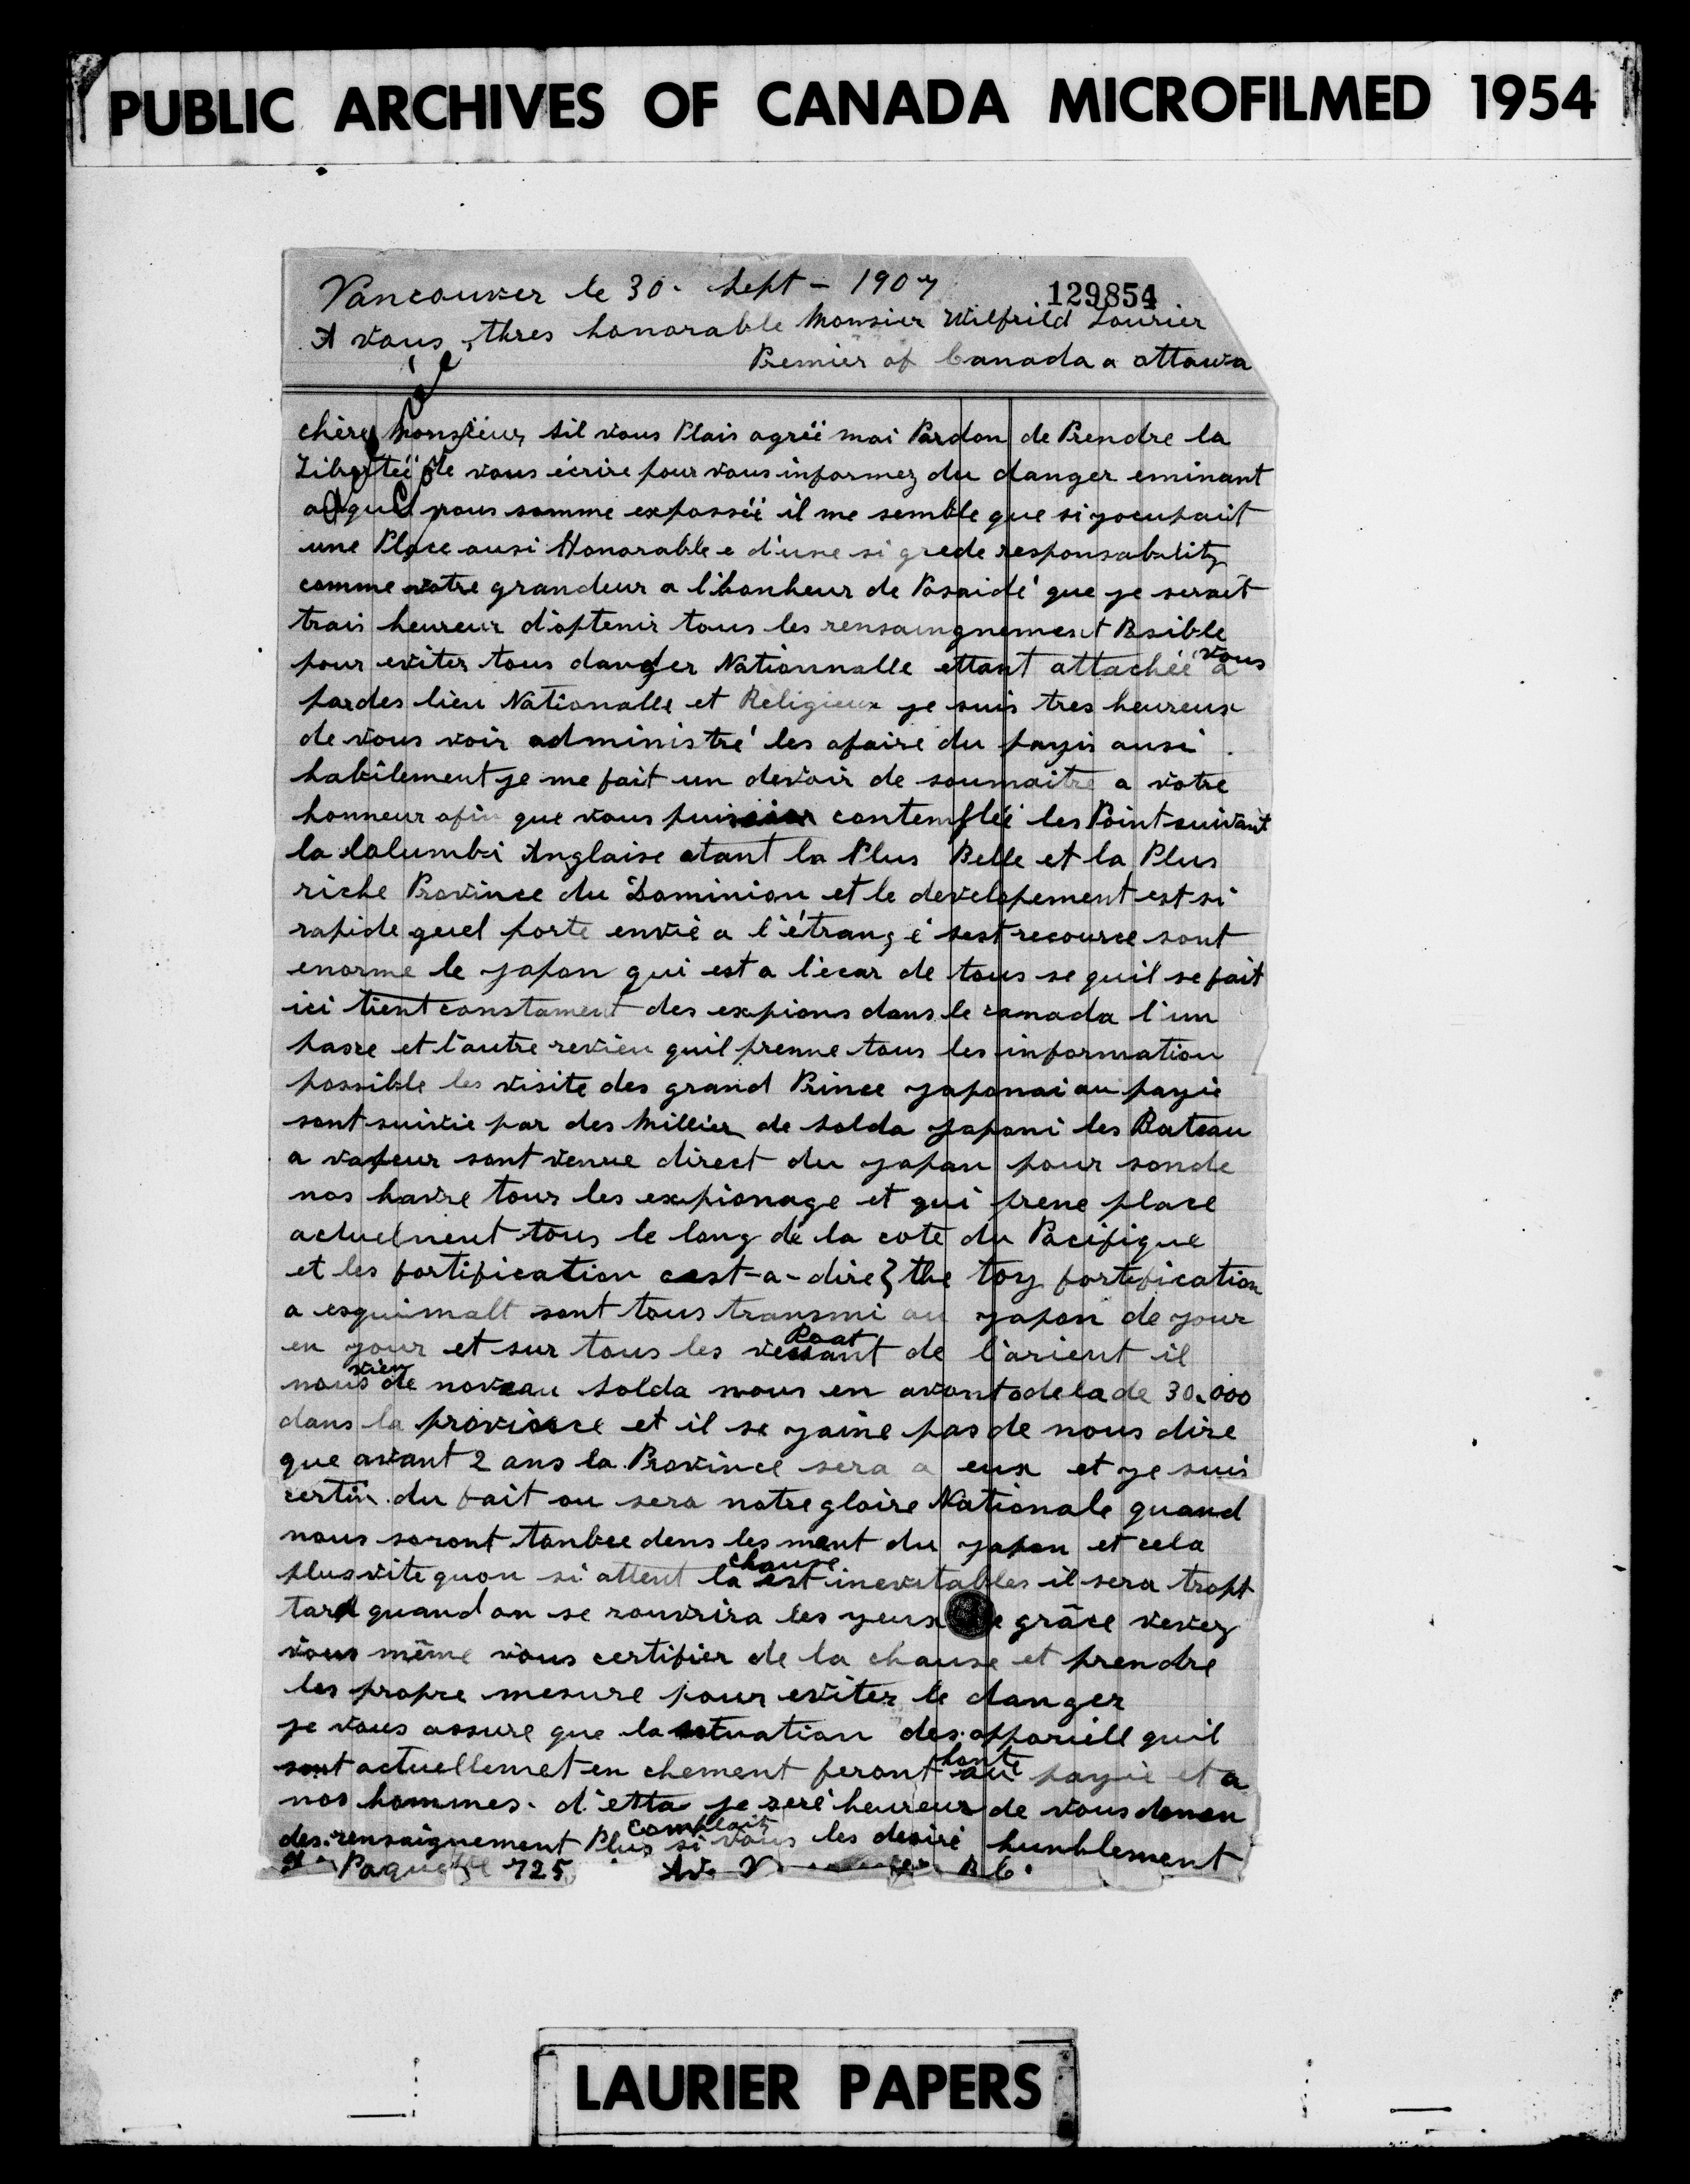 PUBLIC ARCHIVES OF CANADA MICROFILMED 1954
Vancouver le 30. Sept - 1907
129854
A vous thres honorable Monsier Wilfrild Lourier
Premier of Canada a ottawa
chère Monsieur, sil vous Plais agréé moi Pardon de Prendre la
Libertéé de vous écrire pour vous informez du danger eminant
au quel nous somme expossée il me semble que si yocupait
une Place ausi Honorable e d'une si grede responsabulity
comme votre grandeur a l'honheur de Posaidé que ye serait
trais heureur d'optenir tous les rensaingnement Psible
pour eviter tous danger Nationnalle ettant attachée a vous
par des lien Nationalle et Religieux ye suis tres heureux
de vous voir administré les afaire du payis ausi
habilement ye me fait un devoir de soumaitre a votre
honneur afin que vous contemplée les Point suivant
la Columbi Anglaise etant la Plus Belle et la Plus
riche Province du Dominion et le developement est si
rapide quel porte envie a l'étrangé sest recource sont
enorme le yapon qui est a l'écar de tous se quil se fait
ici tient constament des expions dans le canada l'un
passe et l'autre revien quil prenne tous les information
possible les visite des grand Prince yaponai au payie
sont suivie par des Millier de solda yaponi les Bateau
a vapeur sont venue direct du yapan pour sonde
nos havre tous les expionage et qui prene place
actuelnent tous le long de la cote du Pacifique
et les fortification cest-a-dire } the toy fortification
a esquimalt sont tous transmi au yapon de your
en your et sur tous les Boat de l'orient il
nous vien de noveau solda nous en avont odela de 30.000
dans la province et il se yaine pas de nous dire
que avant 2 ans la Province sera a eux et ye suis
certin du fait ou sera notre gloire Nationale quand
nous soront tonbee dens les ment du yapon et cela
plus vite quon si attent la chause est inevutables il sera tropt
tard quand on se rouvrira les yeux de grâce venez
vous même vous certifier de la chause et prendre
les propre mesure pour eviter le danger
ye vous assure que la setuation des appariell quil
sont actuellemet en chement feront honte au payie et a
nos hommes. d'etta ye seré heureur de vous donen
des rensaignement Plus complait si vous les desiré hunblement
Paquette 725 Av. B C.
LAURIER PAPERS